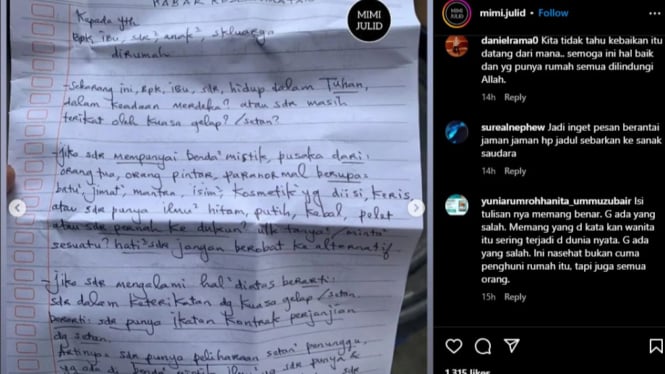 KABAR
MIMI
JULID
Kepada Yth
Bpk, iBu, sdr² anak², skluarga
dirumah
-Sekarang ini, Bpk, iBu, sdr, hidup dalam TUHAN,
dalam keadaan merdeka? atau sdr masih
terikat oleh kuasa gelap? /setan?
-Jika sdr mempunyai benda² mistik, pusaka dari:
orang tua, orang pintar, paranormal berupa:
batu², jimat², mantan, isim², kosmetik yg diisi, keris
atau sdr punya ilmu² hitam, putih, kebal, pelet
atau sdr pernah ke dukun? utk tanya², minta²
sesuatu? hati² sdr jangan berobat ke alternatif
-Jika sdr mengalami hal² diatas berarti:
sdr dalam keterikatan dg kuasa gelap /setan.
berarti: sdr punya ikatan kontrak perjanjian
dg setan.
Artinya: sdr punya peliharaan setan² penunggu,
yg ada di benda² mistik, ilmu² yg sdr punya &
sdr
MIMI
JULID
mimi.julid • Follow
danielrama0 Kita tidak tahu kebaikan itu
datang dari mana.. semoga ini hal baik
dan yg punya rumah semua dilindungi
Allah.
14h Reply
surealnephew Jadi inget pesan berantai
jaman jaman hp jadul sebarkan ke sanak
saudara
14h Reply
yuniarumrohhanita_ummuzubair Isi
tulisan nya memang benar. G ada yang
salah. Memang yg d kata kan wanita
itu sering terjadi d dunia nyata. G ada
yang salah. Ini nasehat bukan cuma
penghuni rumah itu, tapi juga semua
orang.
15h Reply
1,315 likes